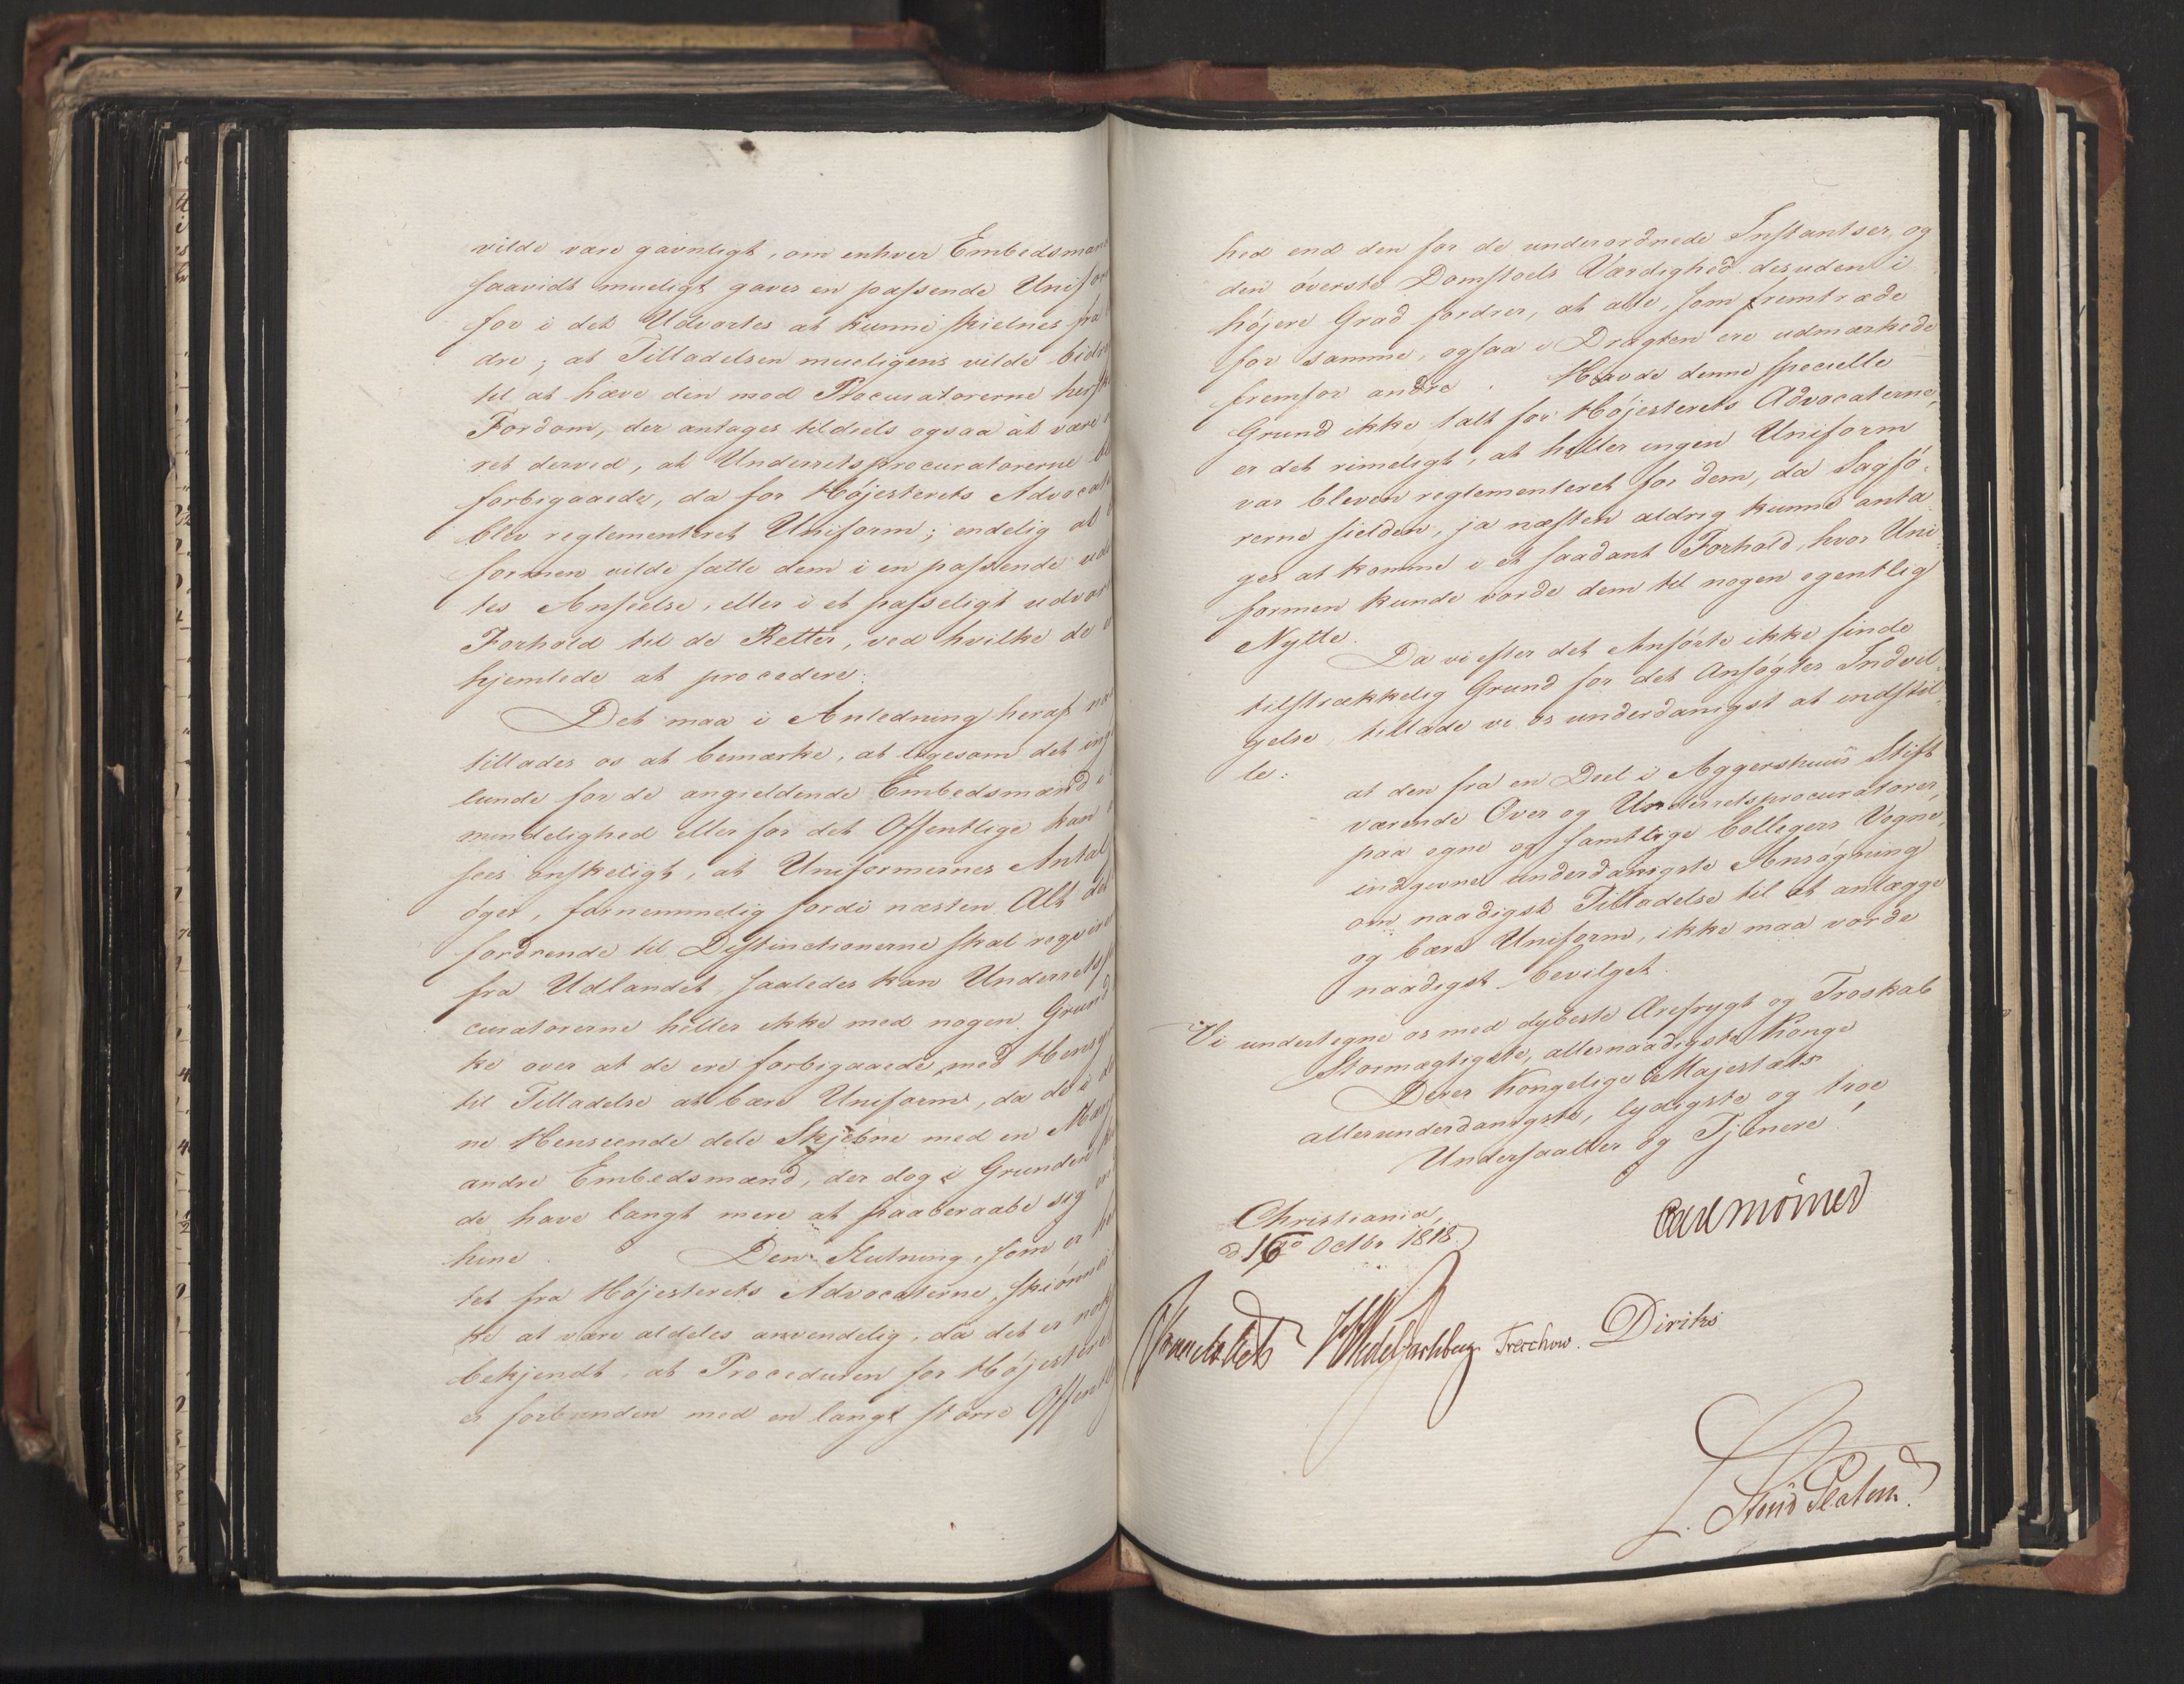 vilde være gavnligt, om enhver Embedsman
saavidt mueligt gaves en passende Unifor
for i det Udvortes at kunne skielnes fra
dre; at Tilladelsen mueligens vilde bidr
til at hæve den mod Procuratorerne hersk
Fordom, der antages tildeels ogsaa at være
ret derved, at Underretsprocuratorerne bl
forbigaaede, da for Højesterets Advocat
blev reglementeret Uniform; endelig at
formen vilde sætte dem i en passende ud
tes Anseelse, eller i et passeligt udvor
Forhold til de Retter, ved hvilke de
hjemlede at procedere.
Det maa i Anledning heraf
tillades os at bemærke, at ligesom det ing
lunde for de angieldende Embedsmænd i
mindelighed eller for det Offentlige kan
sees ønskeligt, at Uniformernes Antal
øges, fornemmelig fordi næsten Alt det
fordrende til Distinctionerne skal reqvire
fra Udlandet, saaledes kan Underrets
curatorerne heller ikke med nogen Grund
ke over at de ere forbigaaede med Hensy
til Tilladelse at bære Uniform, da de i de
ne Henseende dele Skjebne med en Mæn
andre Embedsmænd, der dog i Grunden
de have langt mere at paaberaabe sig en
hine. Den Slutning, som er he
tet fra Højesterets Advocaterne, skiønne
ke at være aldeles anvendelig, da det er nok
bekjendt, at Proceduren for Højestere
er forbunden med en langt større Offent
hed end den for de underordnede Instantser, og
den øverste Domstoels Værdighed desuden i
højere Grad fordrer, at alle, som fremtræde
for samme, ogsaa i Dragten ere udmærkede
fremfor andre. Havde denne specielle
Grund ikke talt for Højesterets Advocaterne,
er det rimeligt, at heller ingen Uniform
var bleven reglementeret for dem, da Sagfø-
rerne sielden, ja næsten aldrig kunne anta
ges at komme i et saadant Forhold, hvor Uni
formen kunde vorde dem til nogen egentlig
Nytte.
Da vi efter det Anførte ikke finde
tilstrækkelig Grund for det Ansøgtes Indvil-
gelse tillade vi os underdanigst at indstil-
le:
at den fra en Deel i Aggershuus Stift
værende Over og Underretsprocuratorer,
paa egne og samtlige Collegers Vegne,
indgivne underdanigste Ansøgning
om naadigst Tilladelse til at anlægge
og bære Uniform, ikke maa vorde
naadigst bevilget.
Vi undertegne os med dybeste Ærefrygt og Troskab
Stormægtigste, allernaadigste Konge
Deres Kongelige Majestæts
allerunderdanigste, lydigste og troe
Undersaatter og Tjenere!
Christiania,
d 16de Octbr 1818.
Carl Mörner
Sommerhielm HWedel Jarlsberg Treschow. Diriks
L. Stoud Platou.